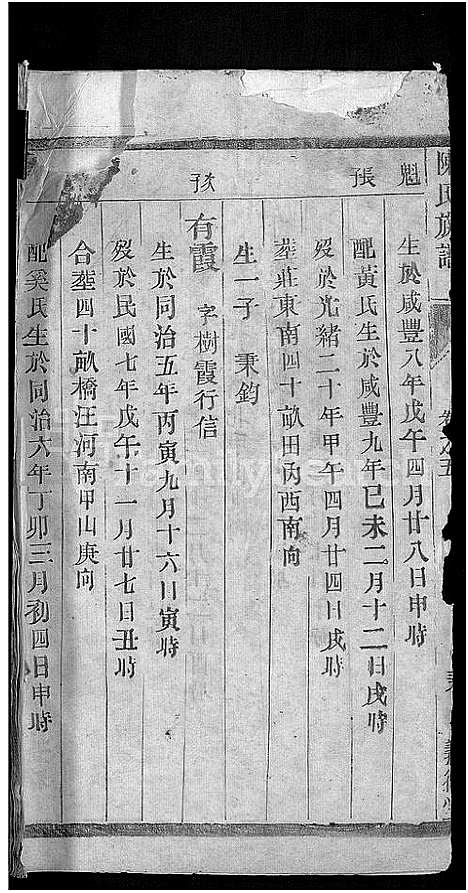 陳氏族譜
卷
五
魁
張
生於咸豐八年戊午四月廿八日申時
配黃氏生於咸豐九年己未二月十二日戌時
歿於光緒二十年甲午四月廿四日戌時
葬莊東南四十畝田內西南向
生一子 秉鈞
有霞 字樹霞行信
生於同治五年丙寅九月十六日寅時
歿於民國七年戊午十一月廿七日丑時
合葬四十畝橋汪河南甲山庚向
配奚氏生於同治六年丁卯三月初四日申時